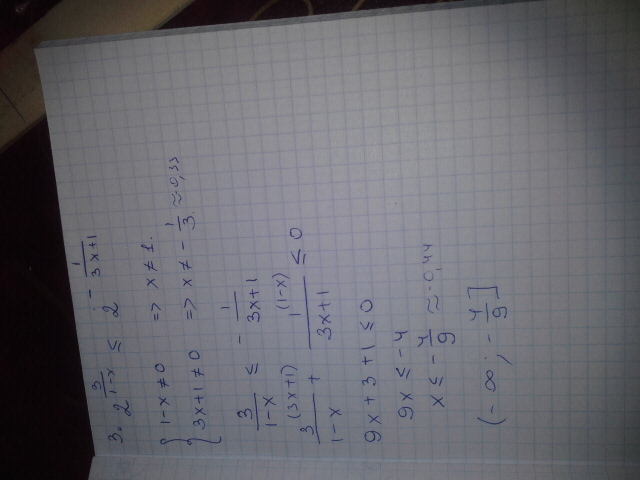 3. 2^(3/(1-x)) ≤ 2^(-1/(3x+1))
{ 1-x≠0 => x≠1.
{ 3x+1≠0 => x≠ -1/3 ≈ 0,33
3/(1-x) ≤ - 1/(3x+1)
3/(1-x) (3x+1) + 1/(3x+1) (1-x) ≤ 0
9x+3+1 ≤ 0
9x ≤ -4
x ≤ -4/9 ≈ -0,44
(-∞; -4/9]